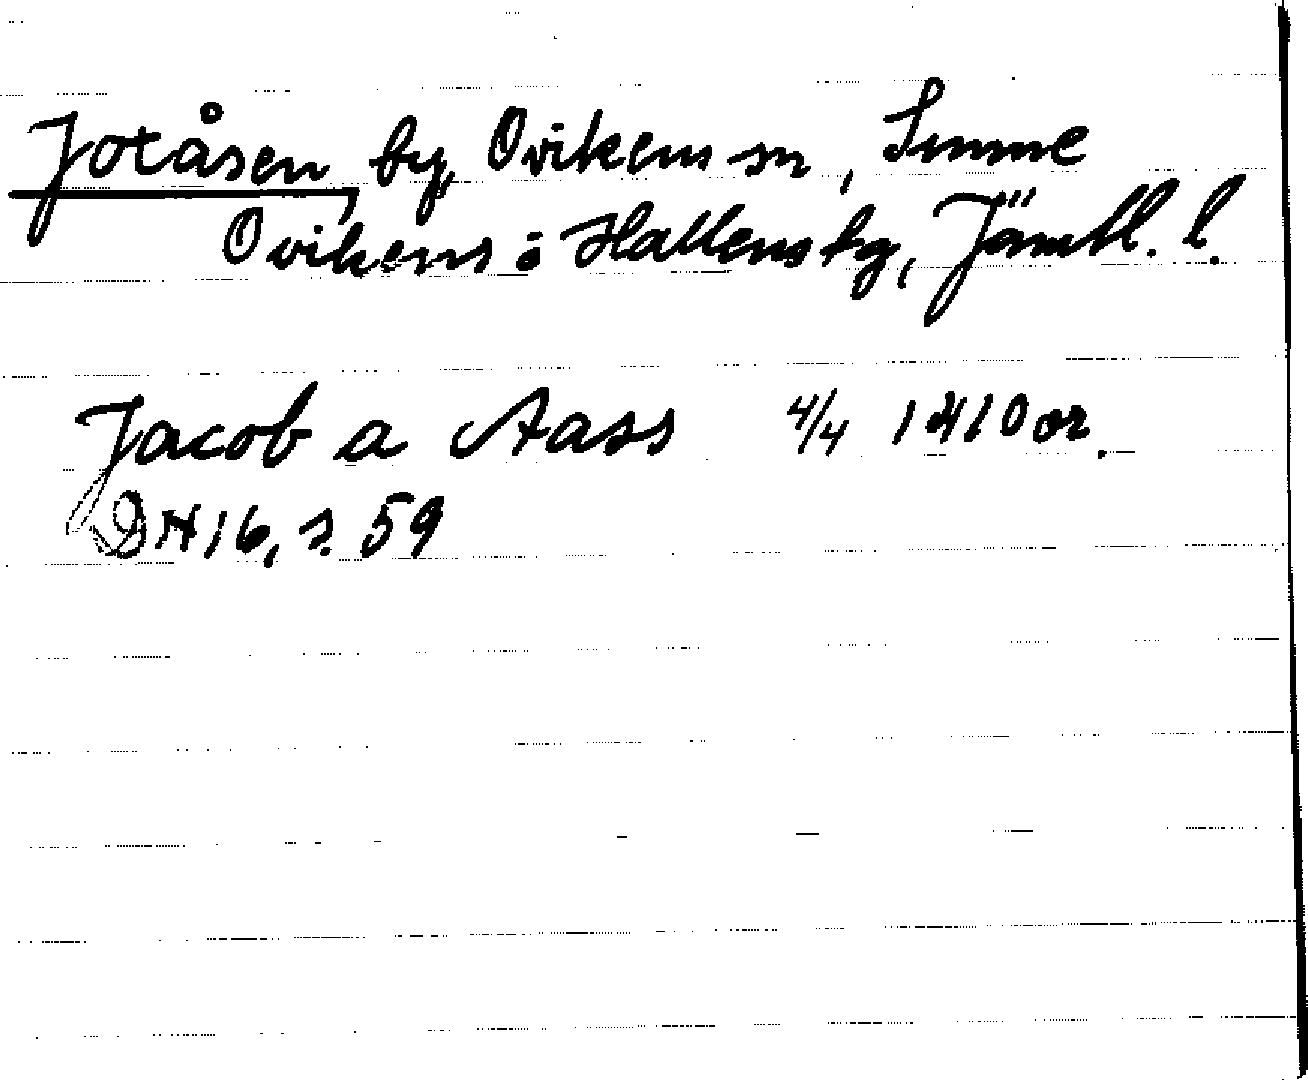 Jotåsen, by, Ovikens sn, Sunne
Ovikens o Hallens tg, Jämtl. l.
Jacob a Aass 4/4 1410 or.
DN 16, s. 59